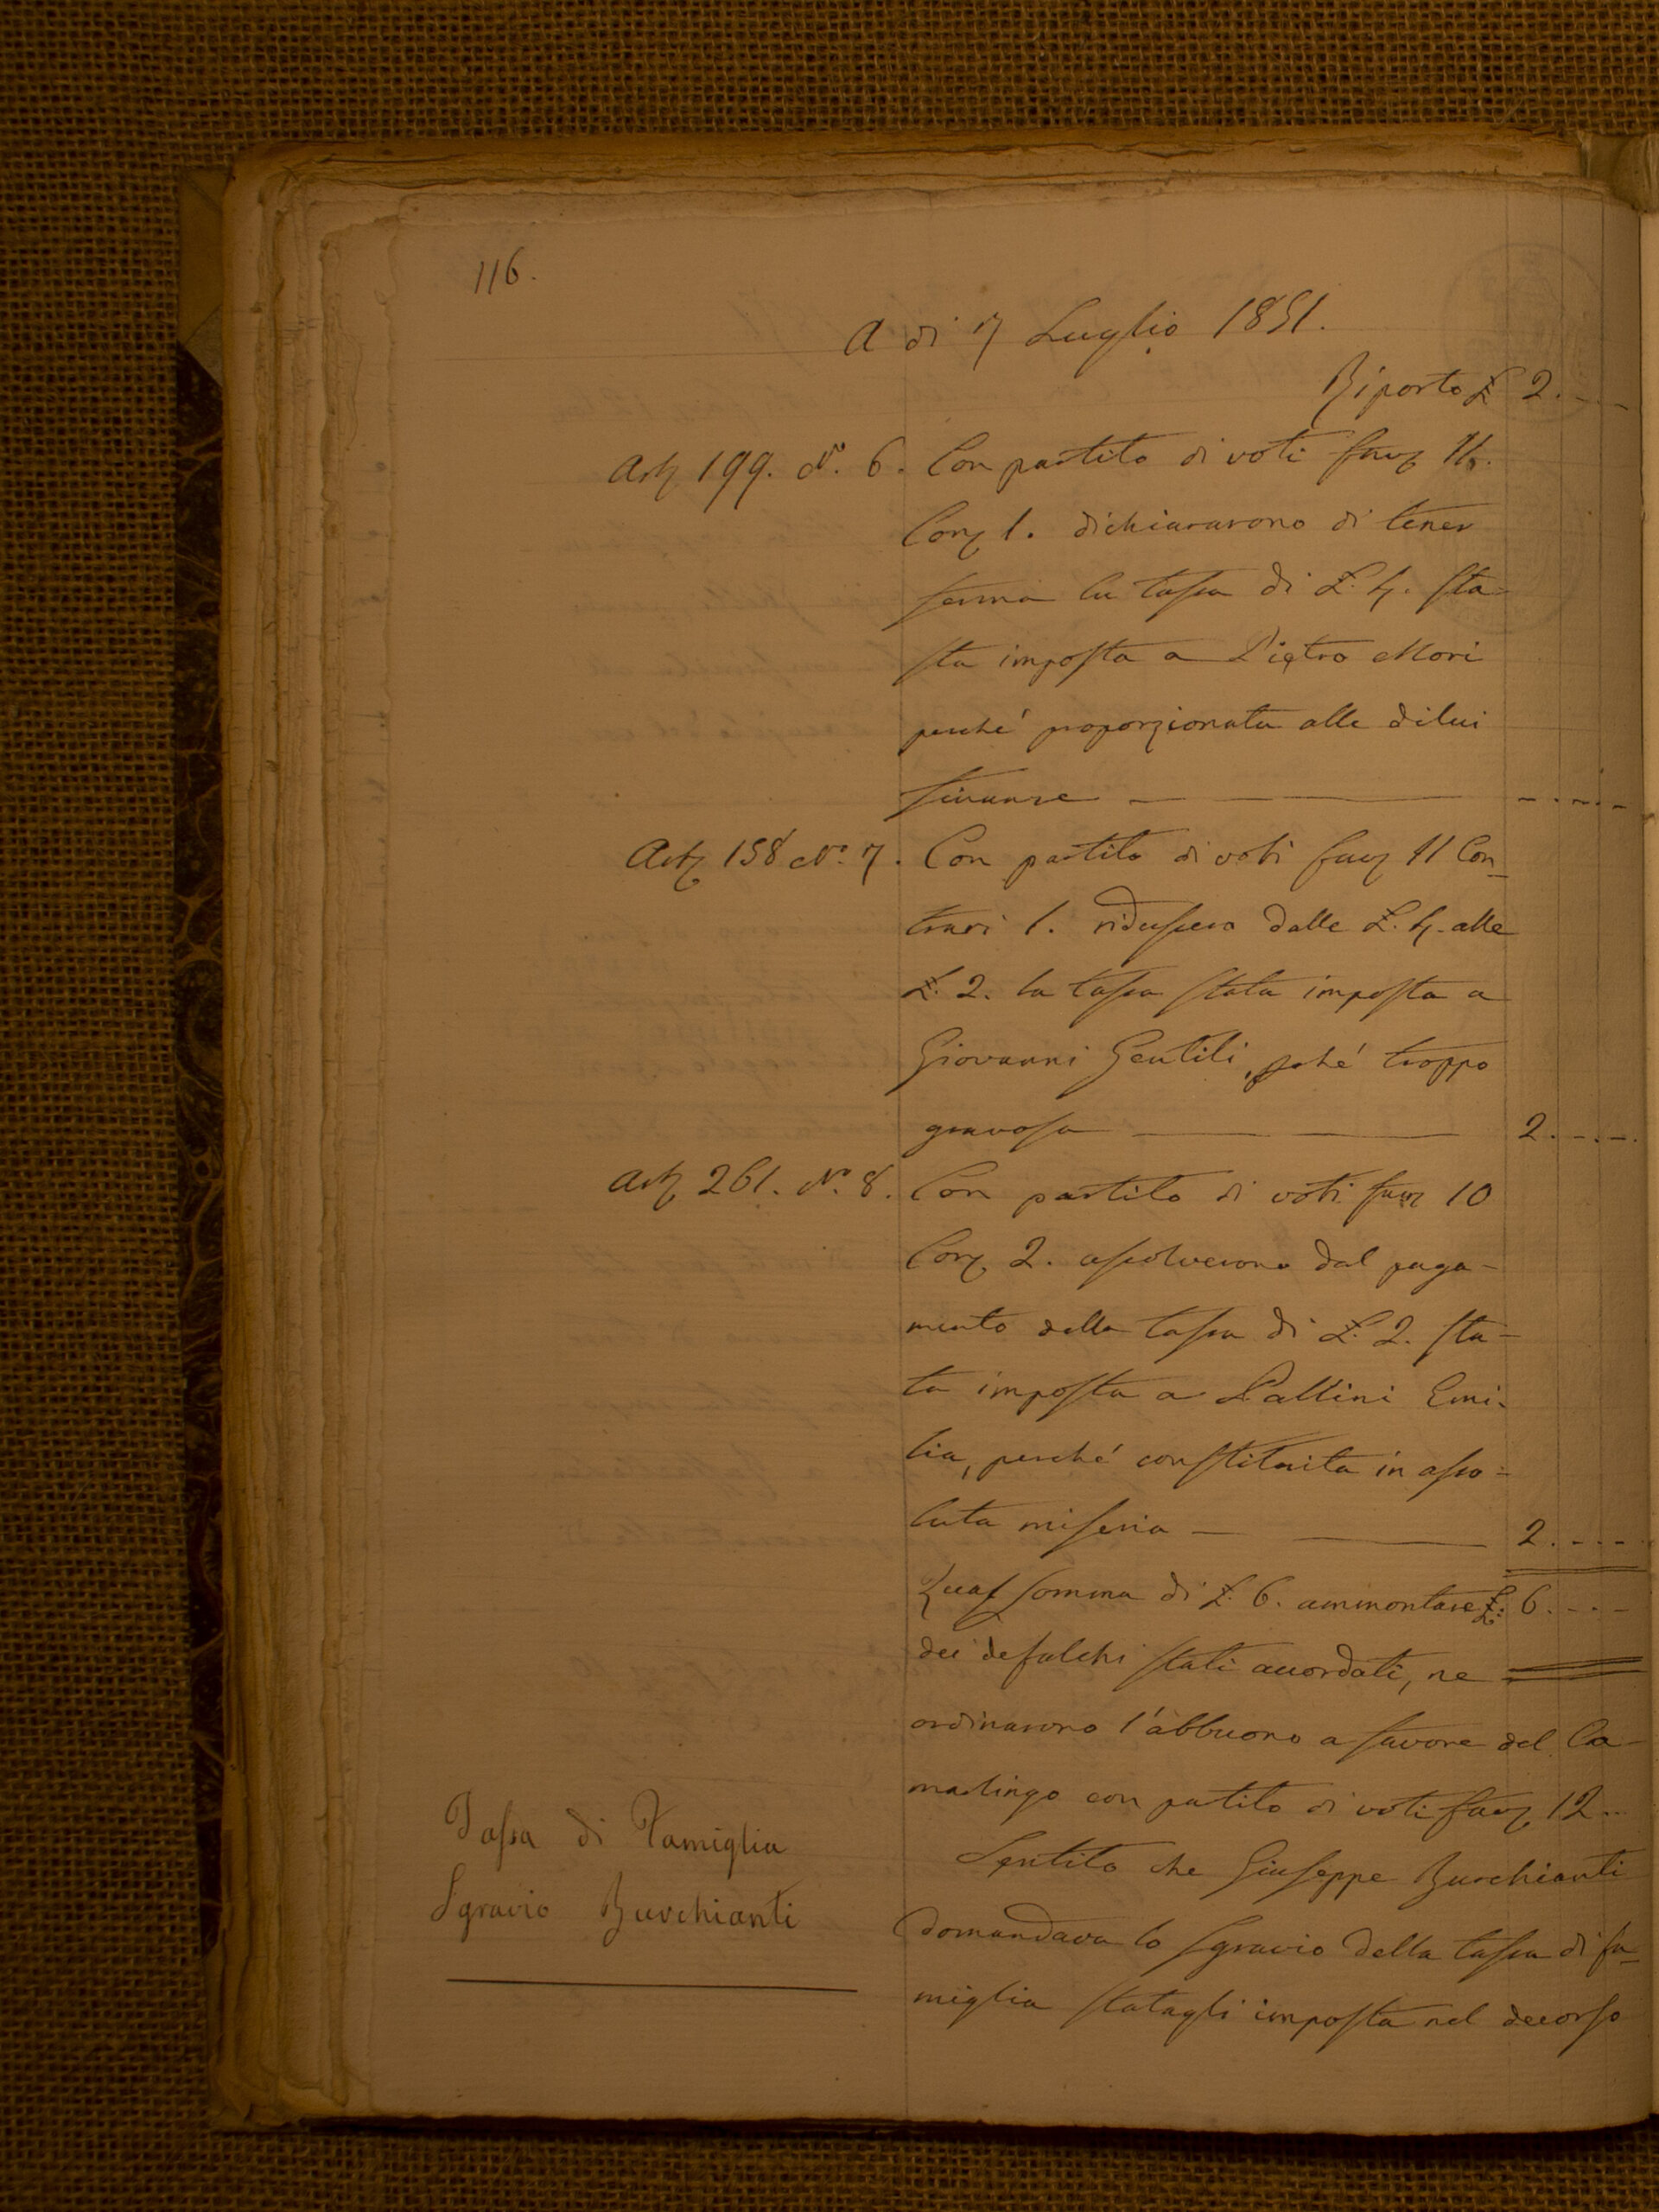 116.
A di 7 Luglio 1851.
Riporto £ 2. - - -
Art. 199. N.° 6. Con partito di voti fav. 11.
Con. 1. dichiararono di tener
ferma la tassa di £. 4. sta-
ta imposta a Pietro Mori
perché proporzionata alle dilui
finanze — — - - - - -
Art. 158 N.° 7. Con partito di voti fav. 11 Con-
trari 1. ridussero dalle £. 4. alle
£. 2. la tassa stata imposta a
Giovanni Gentili, pché troppo
gravosa — — 2. - - -
Art. 261. N.° 8. Con partito di voti fav. 10
Con. 2. assolverono dal paga-
mento della tassa di £. 2. sta-
ta imposta a Pallini Emi-
lia, perché constituita in asso-
luta miseria — — 2. - - -
Qual somma di £. 6. ammontare £: 6. - - -
dei defalchi stati accordati, ne
ordinarono l'abbuono a favore del Ca-
marlingo con partito di voti fav. 12..
Tassa di Famiglia
Sgravio Burchianti
Sentito che Giuseppe Burchianti
domandava lo sgravio della tassa di fa-
miglia statagli imposta nel decorso